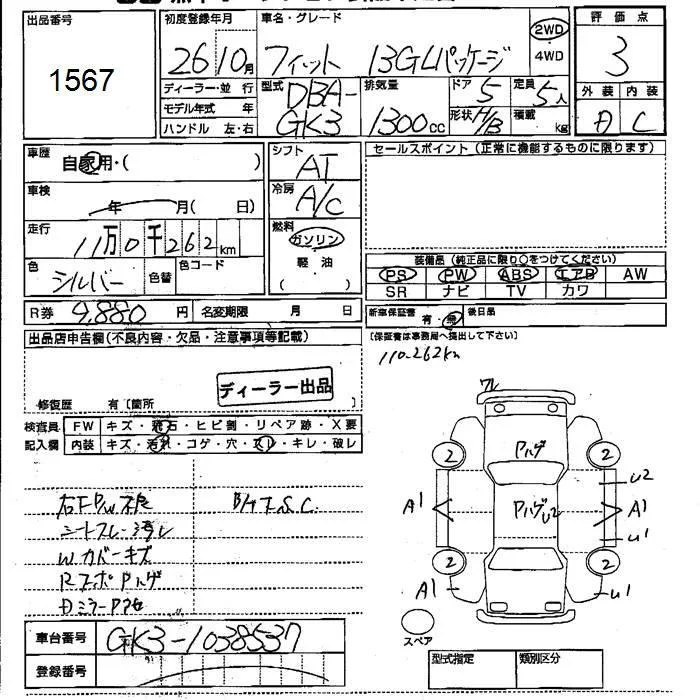 出品番号
1567
初度登録年月
26 10月
車名・グレード
フィット 13GLパッケージ
2WD
4WD
評価点
3
外装 内装
D C
ディーラー・並行
モデル年式 年
ハンドル 左・右
型式
DBA-
GK3
排気量
1300cc
ドア 5
形状 H/B
定員 5人
積載 kg
車歴
自家用・( )
車検
年 月( 日)
走行
11万0千262km
色
シルバー
色替
色コード
シフト
AT
冷房
A/C
燃料
ガソリン
軽油
( )
セールスポイント(正常に機能するものに限ります)
装備品(純正品に限り○をつけてください)
PS PW ABS エアB AW
SR ナビ TV カワ
R券 9,880円
名変期限 月 日
新車保証書 有・無
後日品
(保証書は事務局へ提出して下さい)
110-262km
出品店申告欄(不良内容・欠品・注意事項等記載)
ディーラー出品
修復歴 有〔箇所 〕
検査員
記入欄
FW キズ・飛石・ヒビ割・リペア跡・X要
内装 キズ・汚れ・コゲ・穴・スレ・キレ・破レ
右F P.W不良
シートスレ汚レ
W.カバーキズ
Rスポ Pハゲ
車台番号 GK3-1038537
登録番号
ワレ
Pハゲ
PハゲU2
2
2
2
2
A1
A1
A1
U2
U1
U1
スペア
型式指定
類別区分